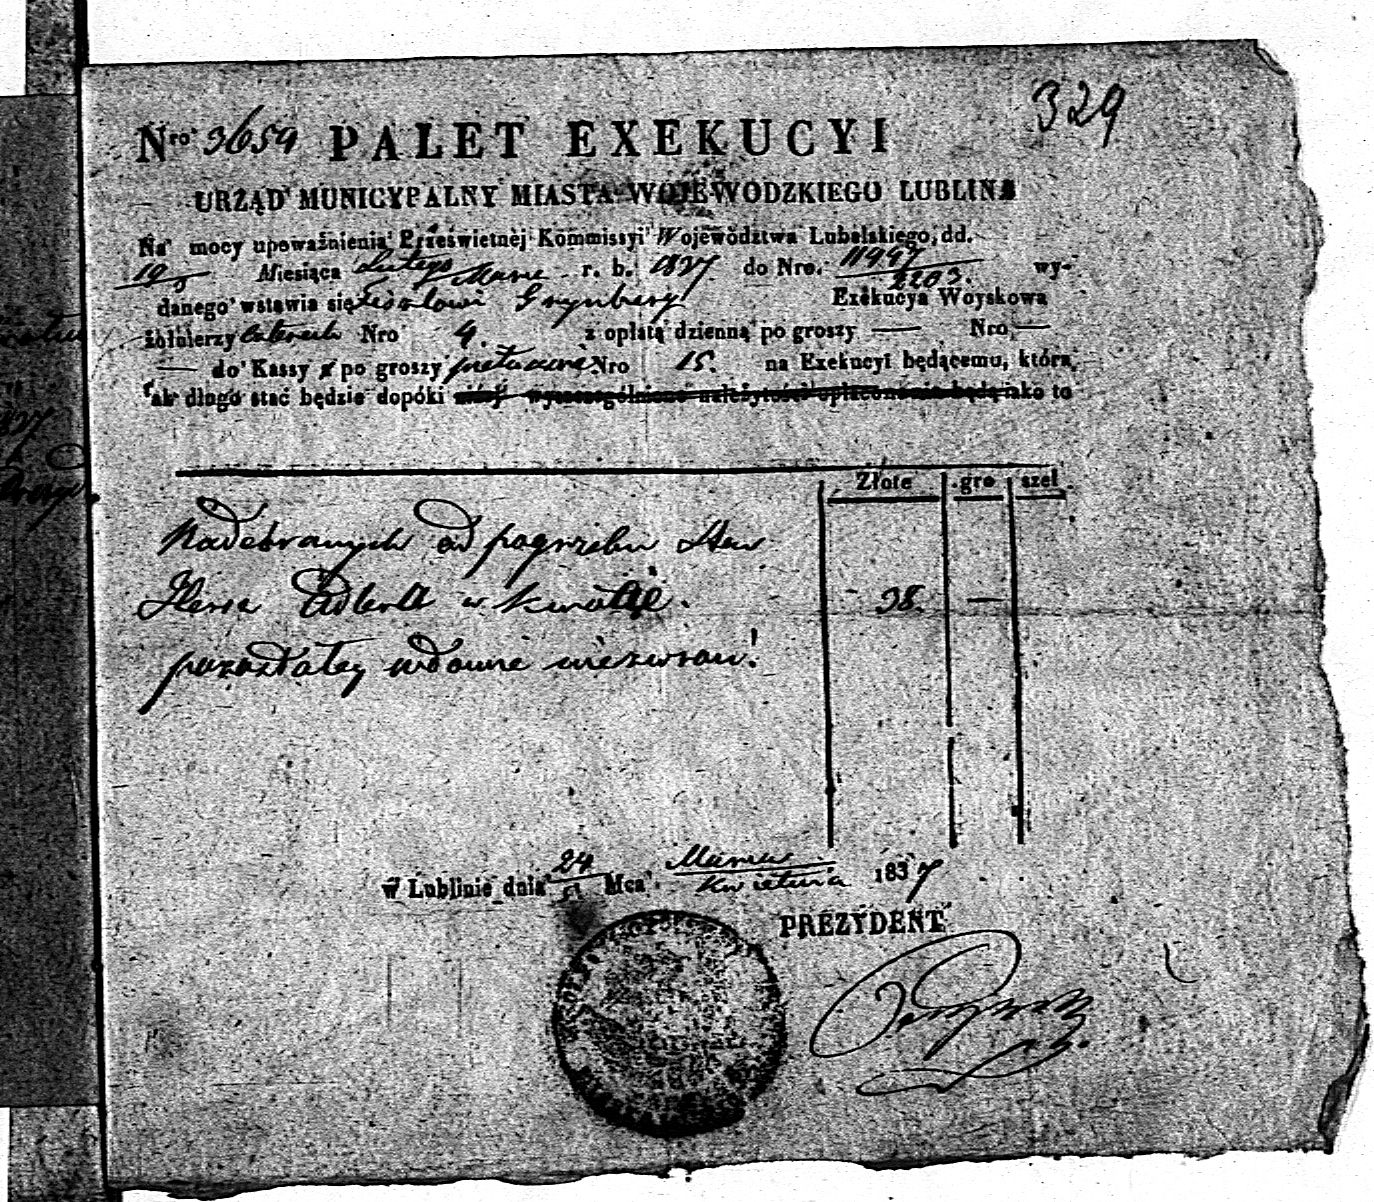 329
Nro 3659 PALET EXEKUCYI
URZĄD MUNICYPALNY MIASTA WOJEWODZKIEGO LUBLINA
Na mocy upoważnienia Prześwietnéj Kommissyi Województwa Lubelskiego, dd.
Miesiąca Lutego Marca r. b. 1837 do Nro. 11997 2203. wy-
danego wstawia się Grynberg Exekucya Woyskowa
żołnierzy czterech Nro 4. z opłatą dzienną po groszy — Nro —
— do Kassy po groszy piętnaście Nro 15. na Exekucyi będącemu, która
tak długo stać będzie dopóki niżéj wyszczególnione należytości opłaconémi będą jako to
Złote gro szel
Nadebranych od pogrzebu
w kwocie. 38. —
pozostałey wdowie niezwrócił
w Lublinie dnia 24 Mca Marca Kwietnia 1837
PREZYDENT